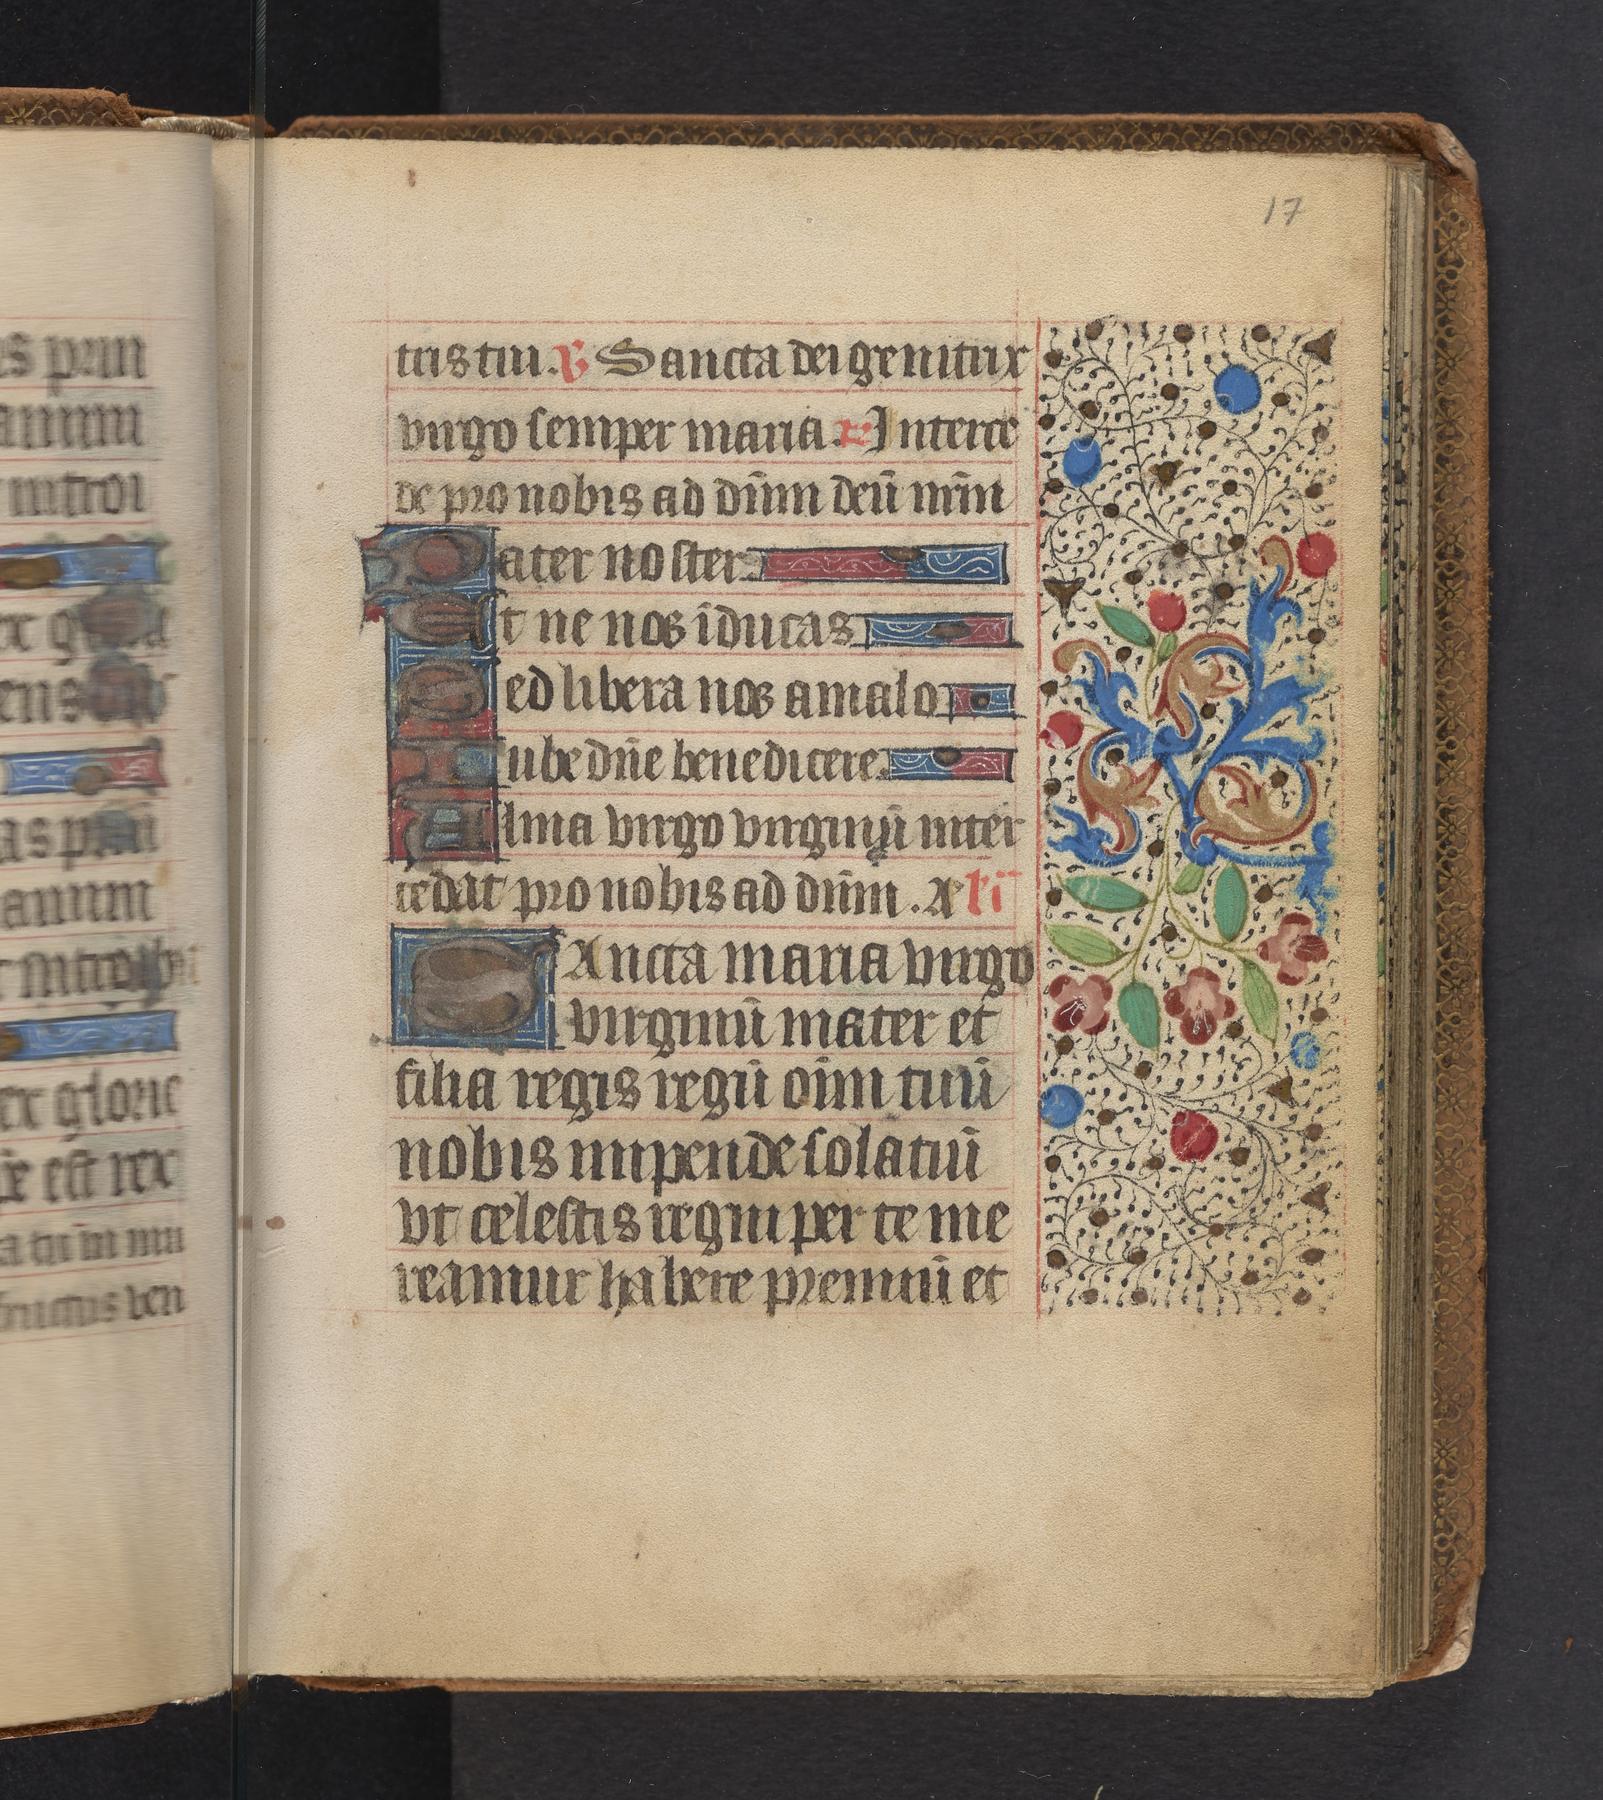 17
tris tui. V Sancta dei genitrix
virgo semper maria. R Interce
de pro nobis ad dn̄m deū nr̄m
Pater noster.
Et ne nos īducas
Sed libera nos a malo
Iube dn̄e benedicere.
Alma virgo virginū inter
cedat pro nobis ad dn̄m. A lc̄i
SAncta maria virgo
virginū mater et
filia regis regū oīm tuū
nobis impende solatiū
vt celestis regni per te me
reamur habere premiū et
s prin
anum
introi
ex g
ens
as p
anum
t introi
ex glorie
est rex
fructus ven